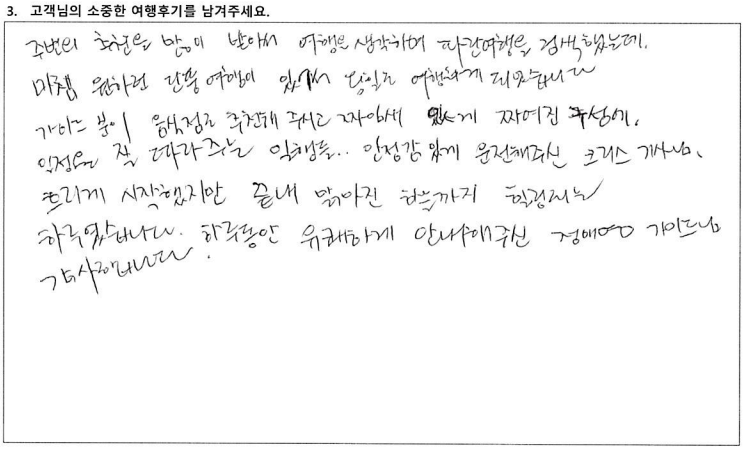 3. 고객님의 소중한 여행후기를 남겨주세요.
주변의 추천을 많이 받아서 여행을 생각하며 다른여행을 검색했는데,
마침 원하던 단풍 여행이 있어서 당일로 여행하게 되었습니다
가이드 분이 음식점도 추천해 주시고 짜임새 있게 짜여진 구성에,
일정을 잘 따라주는 일행들.. 안정감 있게 운전해주신 크리스 기사님,
흐리게 시작했지만 끝내 맑아진 하늘까지 힐링되는
하루였습니다. 하루동안 유쾌하게 안내해주신 정애영 가이드님
감사합니다.